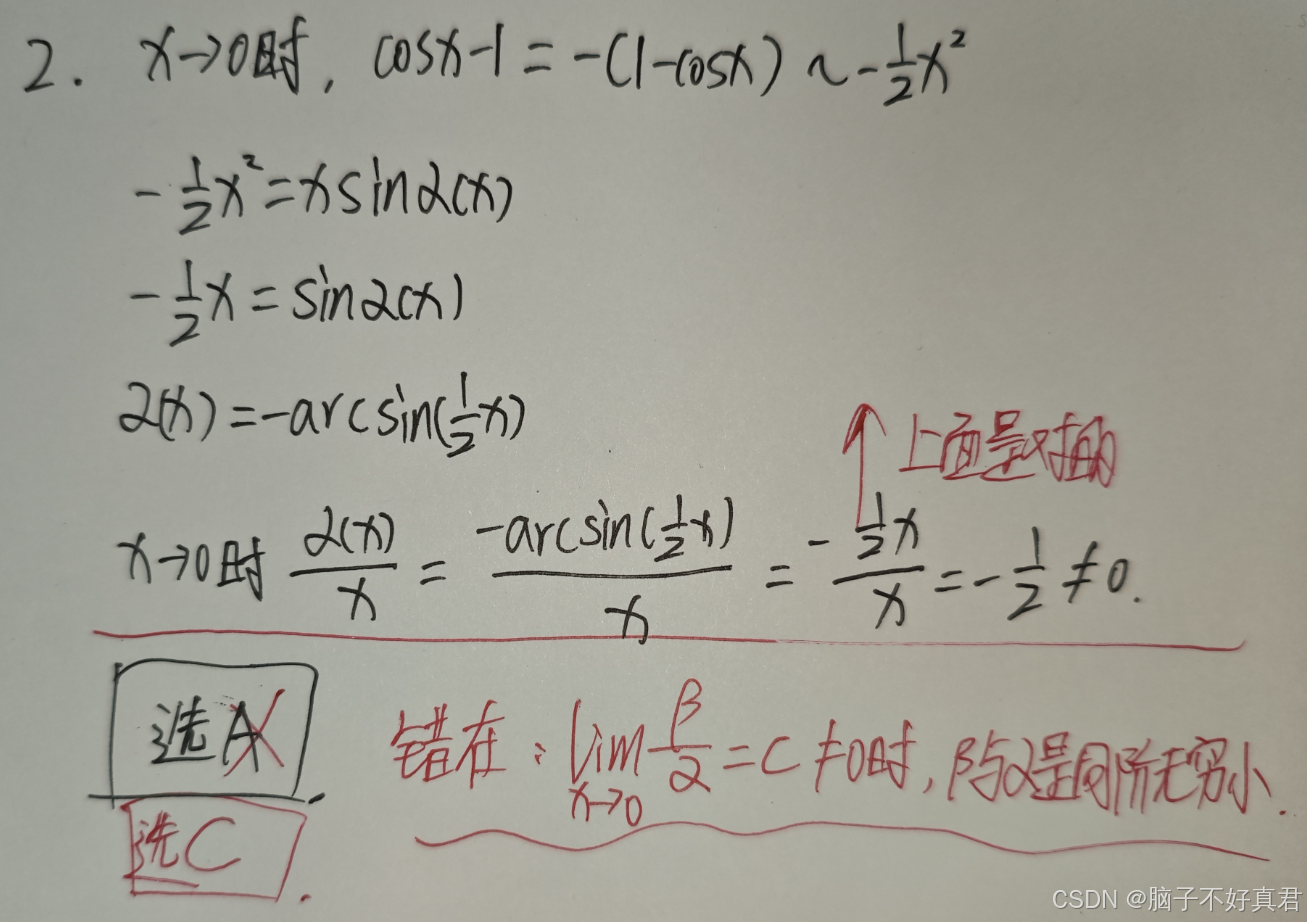 2. x→0时, cosx-1=-(1-cosx)~-1/2x²
-1/2x²=xsinα(x)
-1/2x=sinα(x)
α(x)=-arcsin(1/2x)
上面是对的
x→0时 α(x)/x = -arcsin(1/2x)/x = -1/2x/x = -1/2≠0.
选A
错在: lim x→0 β/α=C≠0时, β与α是同阶无穷小.
选C
CSDN @脑子不好真君